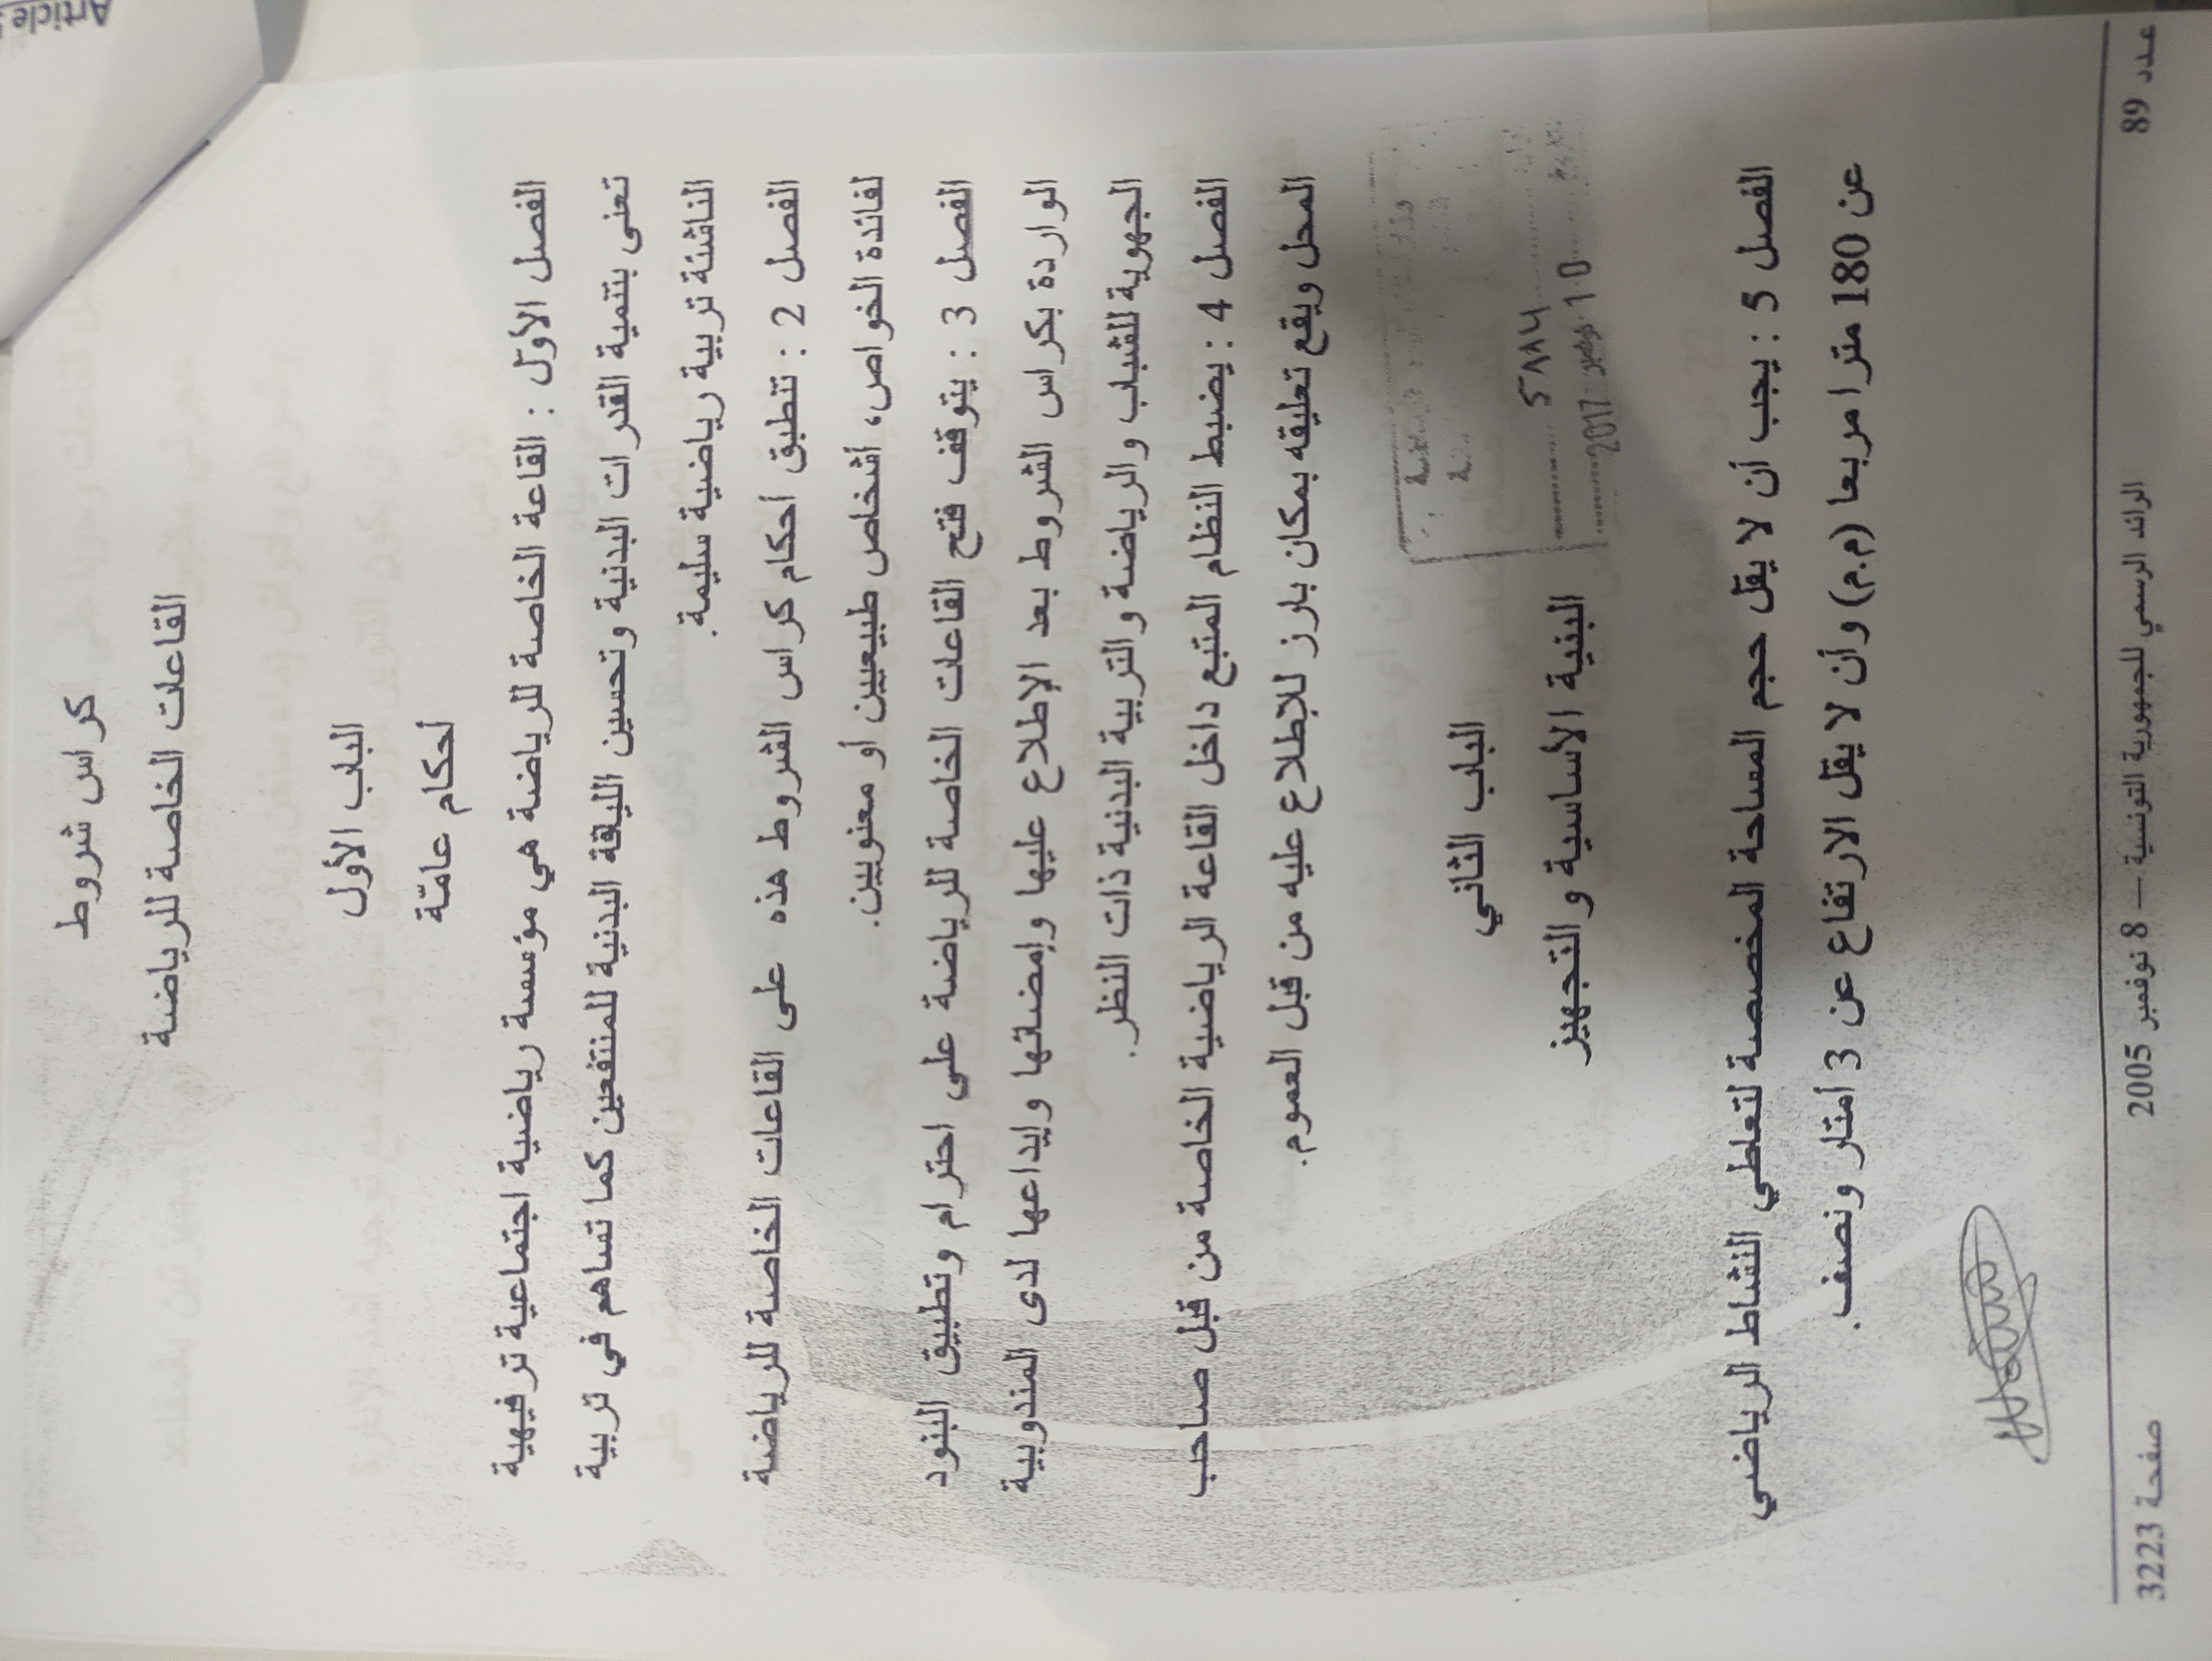 كراس شروط
القاعات الخاصة للرياضة
الباب الأول
أحكام عامّة
الفصل الأوّل : القاعة الخاصة للرياضة هي مؤسسة رياضية اجتماعية ترفيهية
تعنى بتنمية القدرات البدنية وتحسين اللياقة البدنية للمنتفعين كما تساهم في تربية
الناشئة تربية رياضية سليمة.
الفصل 2 : تنطبق أحكام كراس الشروط هذه على القاعات الخاصة للرياضة
لفائدة الخواص، أشخاص طبيعيين أو معنويين.
الفصل 3 : يتوقف فتح القاعات الخاصة للرياضة على احترام وتطبيق البنود
الواردة بكراس الشروط بعد الإطلاع عليها وإمضائها وإيداعها لدى المندوبية
الجهوية للشباب والرياضة والتربية البدنية ذات النظر.
الفصل 4 : يضبط النظام المتبع داخل القاعة الرياضية الخاصة من قبل صاحب
المحل ويقع تعليقه بمكان بارز للإطلاع عليه من قبل العموم.
الباب الثاني
البنية الأساسية والتجهيز
10 نوفمبر 2017
الفصل 5 : يجب أن لا يقل حجم المساحة المخصصة لتعاطي النشاط الرياضي
عن 180 مترا مربعا (م.م) وأن لا يقل الارتفاع عن 3 أمتار ونصف.
عدد 89 الرائد الرسمي للجمهورية التونسية — 8 نوفمبر 2005 صفحة 3223
Article